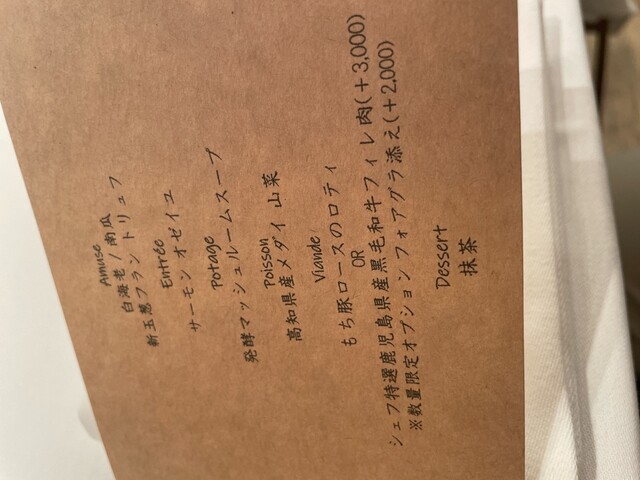 Amuse
白海老/南瓜
新玉葱フラン トリュフ
Entrée
サーモン オゼイユ
Potage
発酵マッシュルームスープ
Poisson
高知県産メダイ 山菜
Viande
もち豚ロースのロティ
OR
シェフ特選鹿児島県産黒毛和牛フィレ肉(+3,000)
※数量限定オプションフォアグラ添え(+2,000)
Dessert
抹茶